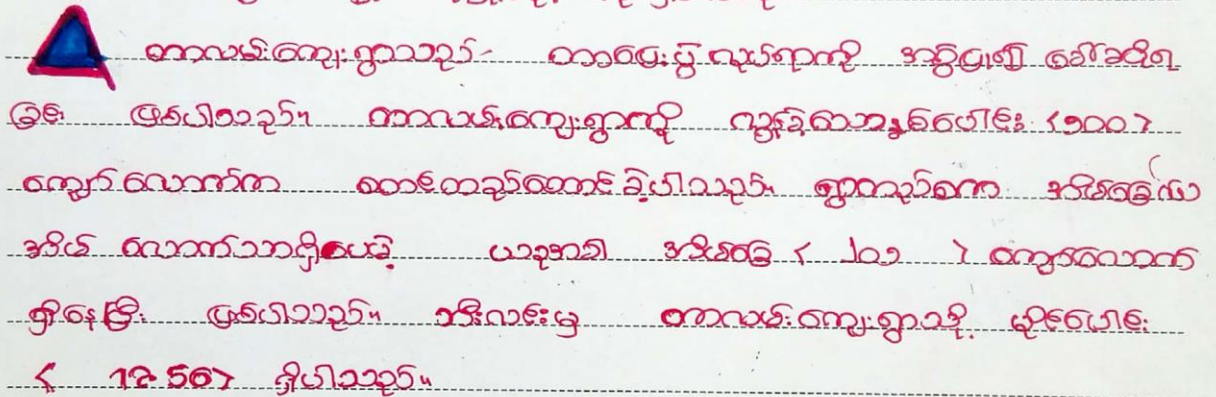 ကာလမ်းကျေးရွာသည်- ကာမွေးပွဲ လုပ်ရာကို အစွဲပြု၍ ခေါ်ခဲ့ရ
ခြင်း ဖြစ်ပါသည်။ ကာလမ်းကျေးရွာကို လွန်ခဲ့သောနှစ်ပေါင်း <၁၀၀>
ကျော် လောက်က စတင်တည်ထောင် ခဲ့ပါသည်။ ရွာတည်စက အိမ်ခြေ
အိမ် လောက်သာရှိပေမဲ့ ယခုအခါ အိမ်ခြေ < ၂၀၁ > ကျော်လောက်
ရှိနေပြီး ဖြစ်ပါသည်။ အီးလင်းမှ ကာလမ်းကျေးရွာသို့ မိုင်ပေါင်း
< 12 56> ရှိပါသည်။